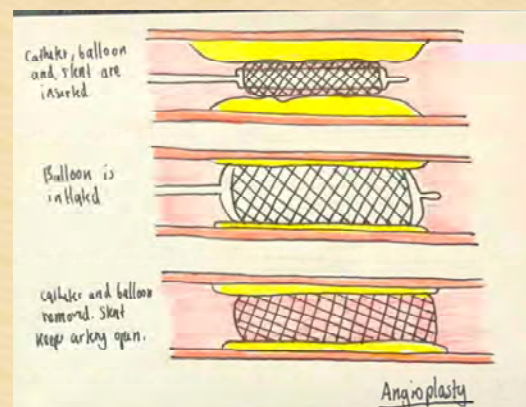 Catheter, balloon
and stent are
inserted
Balloon is
inflated
catheter and balloon
removed. Stent
keeps artery open.
Angioplasty